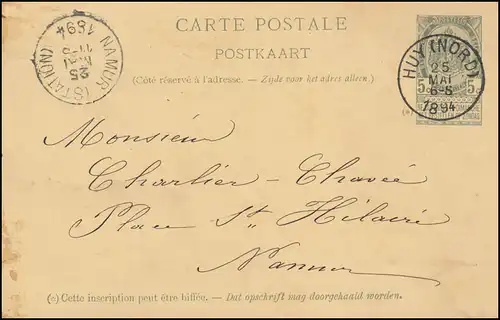 CARTE POSTALE
POSTKAART
(Côté réservé à l'adresse. — Zijde voor het adres alleen.)
NAMUR (STATION)
25
MAI
1894
HUY (NORD)
25
MAI
6-S
1894
5c 5c
(*)
Monsieur
Charlier-Chavée
Place St Hilaire
Namur
(*) Cette inscription peut être biffée. — Dat opschrift mag doorgehaald worden.